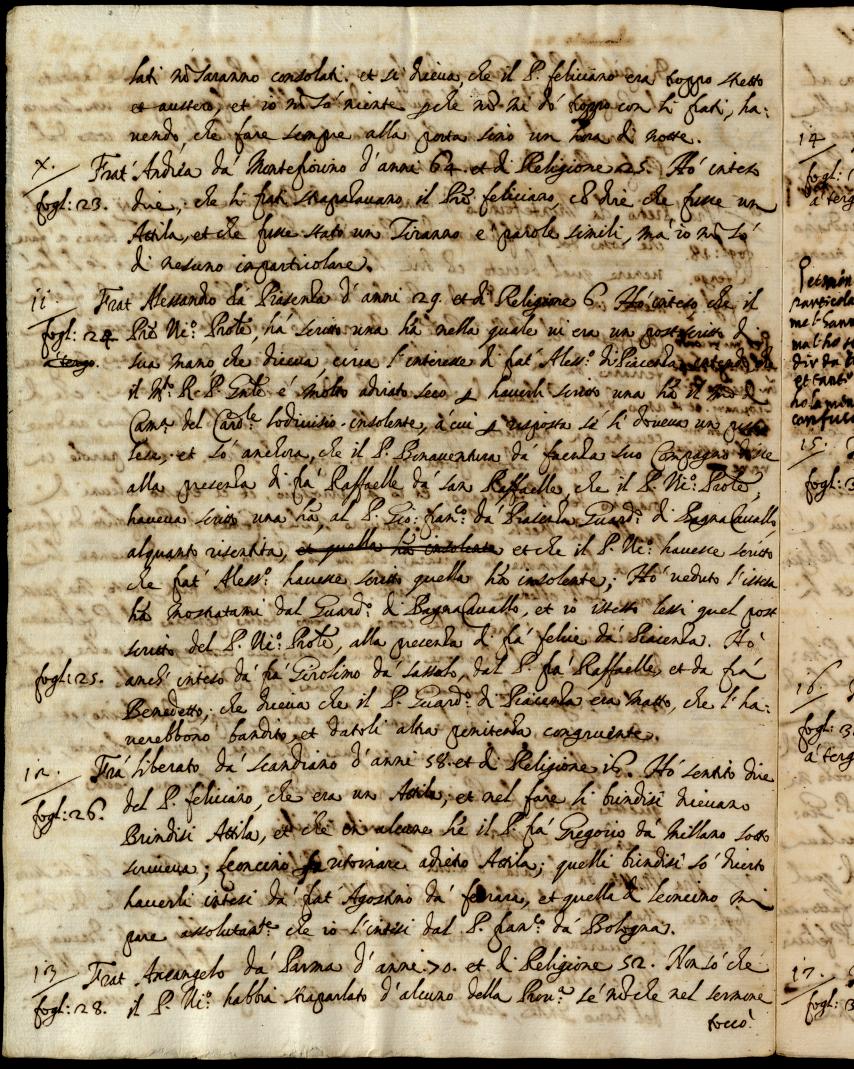 lati nō saranno consolati. et si diceua, che il P. feliciano era troppo stretto
et austero, et io nō sò niente pche nō mi dò troppo con li frati, ha:
uendo, che fare sempre alla porta sino un hora di notte.
x. Frat' Andrea da' Montefiorino d'anni 64. et di Religione 25. Hò inteso
fogl: 23. dire, che li frati straparlauano il Prē feliciano, cō dire che fusse un
Attila, et che fusse stato un Tiranno e parole simili, mà io nō sò
di nesuno in particolare.
ii. Frat Alessandro da' Piasenza d'anni 29. et di Religione 6. Hò inteso che il
fogl: 24 Prē Ni.º Prōle, hà scritto una hā nella quale ui era un postscritto di
à tergo. sua mano che diceua, circa l'interesse di frat' Aless.º di Piacenza
il M.º R. P. Gnāle è molto adirato seco p hauerli scritto una hā il
Cam.º del Card.le Lodiuisio insolente, à cui p risposta se li doueua un
lesa, et sò anchora, che il P. Bonauentura da' faenza suo Compagno disse
alla presenza di frà Raffaelle da' san Raffaelle, che il P. Ni.º Prōle,
haueua scritto una hā, al P. Gio: fran.co da' Piasenza Guard.º di BagnaCauallo
alquanto risentita, et quella hā insolente et che il P. Ni.º hauesse scritto
che frat' Aless.º hauesse scritto quella hā insolente; Hò ueduto l'istessa
hā mostratami dal Guard.º di BagnaCauallo, et io istesso lessi quel post
scritto del P. Ni.º Prōle, alla presenza di frà felice da' Piacenza. Hò
fogl: 25. anch' inteso da' frà Girolimo da' sassolo, dal P. frà Raffaelle, et da frà
Benedetto, che diceua che il P. Guard.º di Piacenza era matto, che l'ha:
uerebbono bandito, et datoli altra penitenza congruente.
12. Frà Liberato da' Scandiano d'anni 58. et di Religione 16. Hò sentito dire
fogl: 26. del P. feliciano, che era un Attila, et nel fare li brindisi diceuano
Brindisi Attila, et che in alcune hē il P. frà Gregorio da' Millano sotto
scriueua; Leoncino ritornare adietro Attila; quelli brindisi sò dicerto
hauerli intesi da' frat' Agostino da' ferrara, et quella di leoncino mi
pare assolutan.te che io l'intesi dal P. fran.co da' Bologna.
13. Frat Arcangelo da' Parma d'anni 70. et di Religione 52. Non sò che
fogl: 28. il P. Ni.º habbia straparlato d'alcuno della Prou.a se nō che nel sermone
toccò
14
fogl:
à terg
15.
fogl: 3
16.
fogl: 3
à terg
17.
fogl: 3